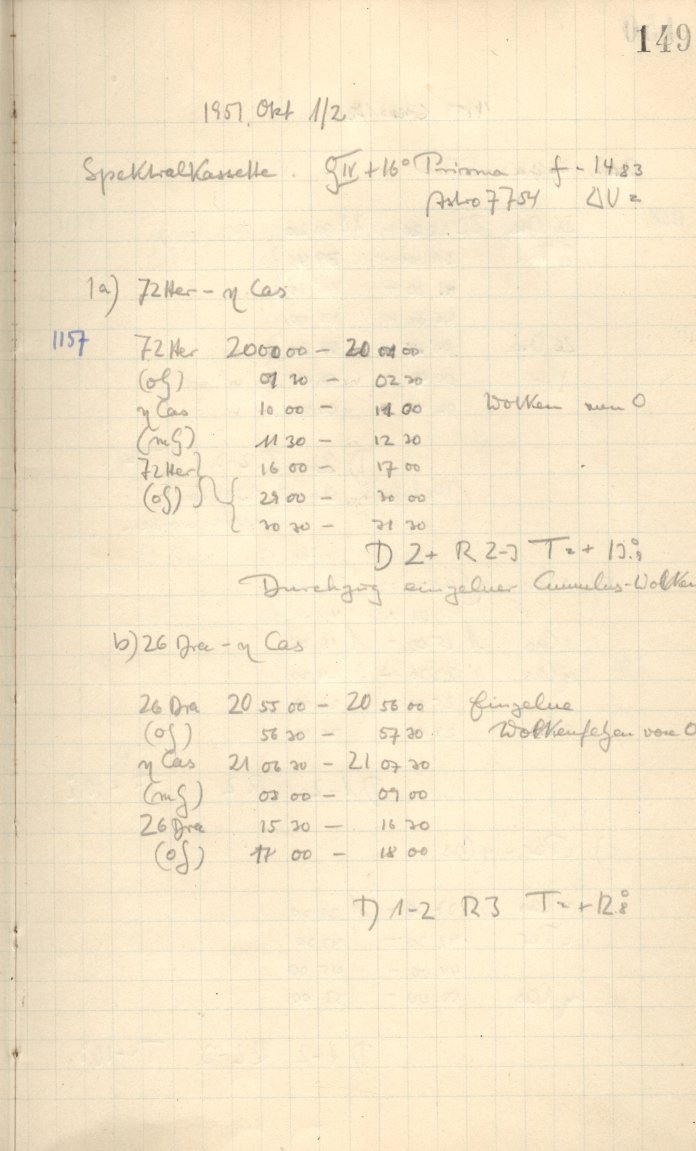 149
1951, Okt 1/2
Spektralkassette. gIV + 16° Prisma f = 14.83
Astro 7754 ΔU =
1a) 72 Her - η Cas
1157
72 Her 20 00 00 - 20 01 00
(og) 01 30 - 02 30
η Cas 10 00 - 11 00 Wolken von O
(mg) 11 30 - 12 30
72 Her 16 00 - 17 00
(og) 29 00 - 30 00
30 30 - 31 30
D 2+ R 2-3 T = + 13.°
Durchzug einzelner Cumulus-Wolken
b) 26 Dra - η Cas
26 Dra 20 55 00 - 20 56 00 Einzelne
(og) 56 30 - 57 30 Wolkenfetzen von O
η Cas 21 06 30 - 21 07 30
(mg) 08 00 - 09 00
26 Dra 15 30 - 16 30
(og) 17 00 - 18 00
D 1-2 R 3 T = + 12.°8